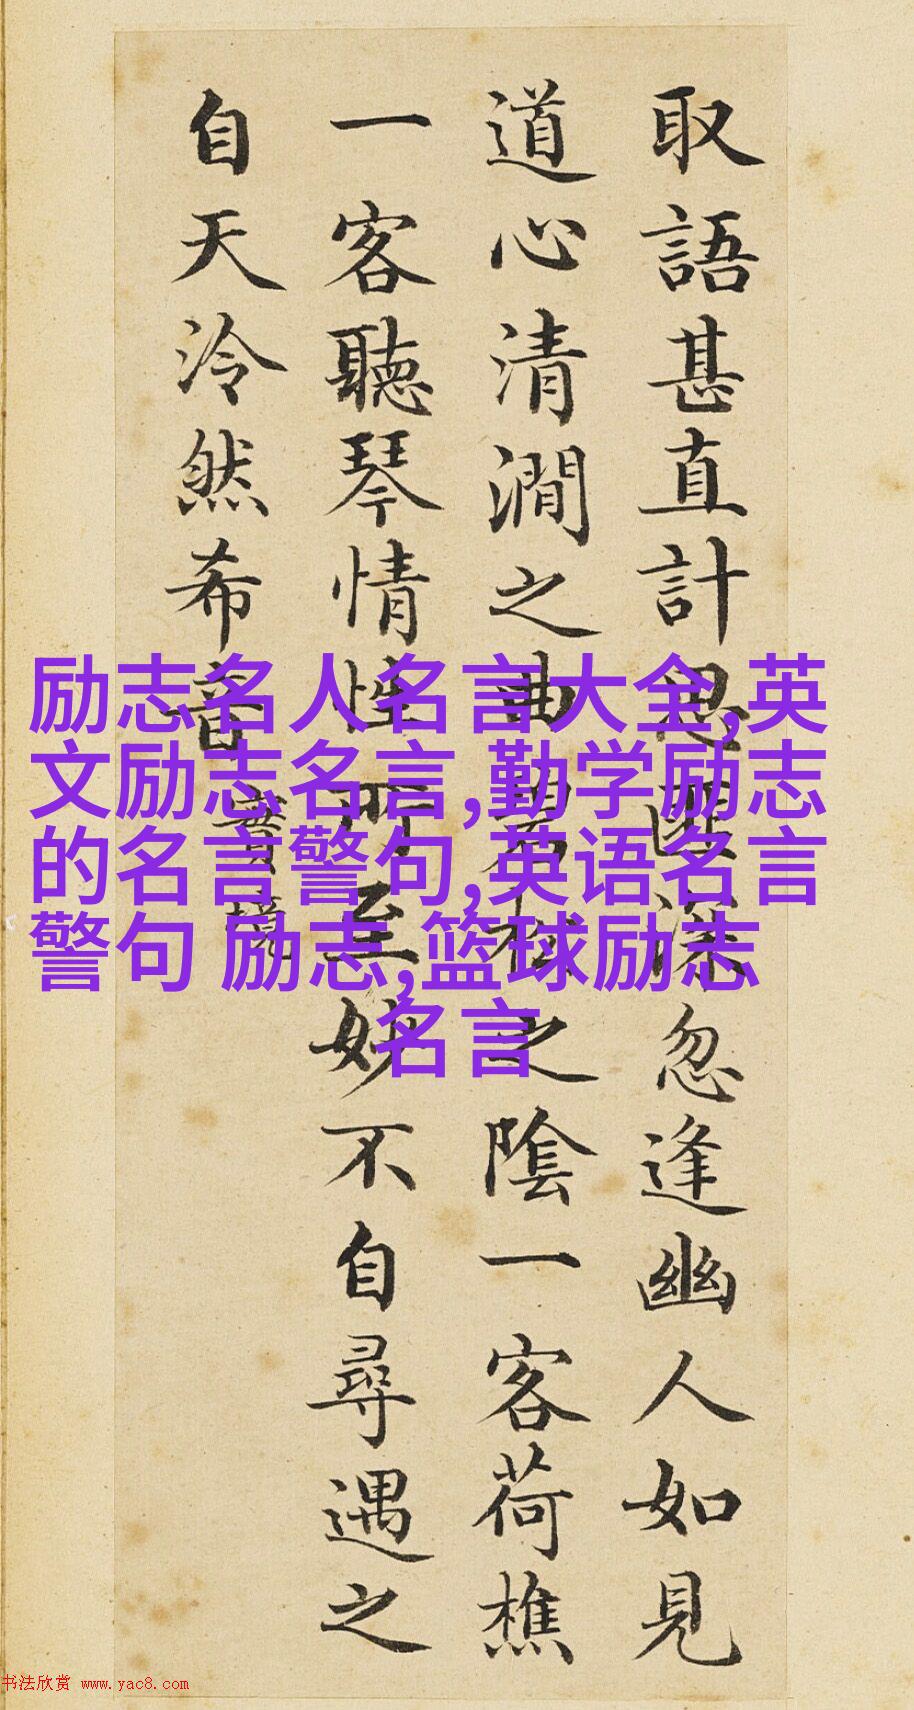 取語甚直計思匪深忽逢幽人如見
道心清澗之曲碧松之陰一客荷樵
一客聽琴情性所至妙不自尋遇之
自天泠然希音
實境
励志名人名言大全,英
文励志名言,勤学励志
的名言警句,英语名言
警句 励志,篮球励志
名言
书法欣赏 www.yac8.com